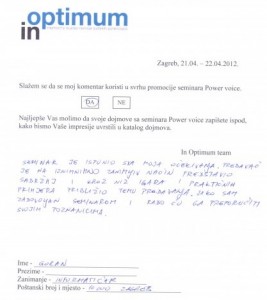 in optimum
Zagreb, 21.04. – 22.04.2012.
Slažem se da se moj komentar koristi u svrhu promocije seminara Power voice.
DA NE
Najljepše Vas molimo da svoje dojmove sa seminara Power voice zapišete ispod,
kako bismo Vaše impresije uvrstili u katalog dojmova.
In Optimum team
SEMINAR JE ISPUNIO SVA MOJA OČEKIVANJA. PREDAVAČ
JE NA IZNIMNO ZANIMLJIV NAČIN PREDSTAVIO
SADRŽAJ I KROZ NIZ IGARA I PRAKTIČNIH
PRIMJERA PRIBLIŽIO TEMU PREDAVANJA. JAKO SAM
ZADOVOLJAN SEMINAROM I RADO ĆU GA PREPORUČITI
SVOJIM POZNANICIMA.
Ime - GORAN
Prezime -
Zanimanje - INFORMATIČAR
Poštanski broj i mjesto - ZAGREB